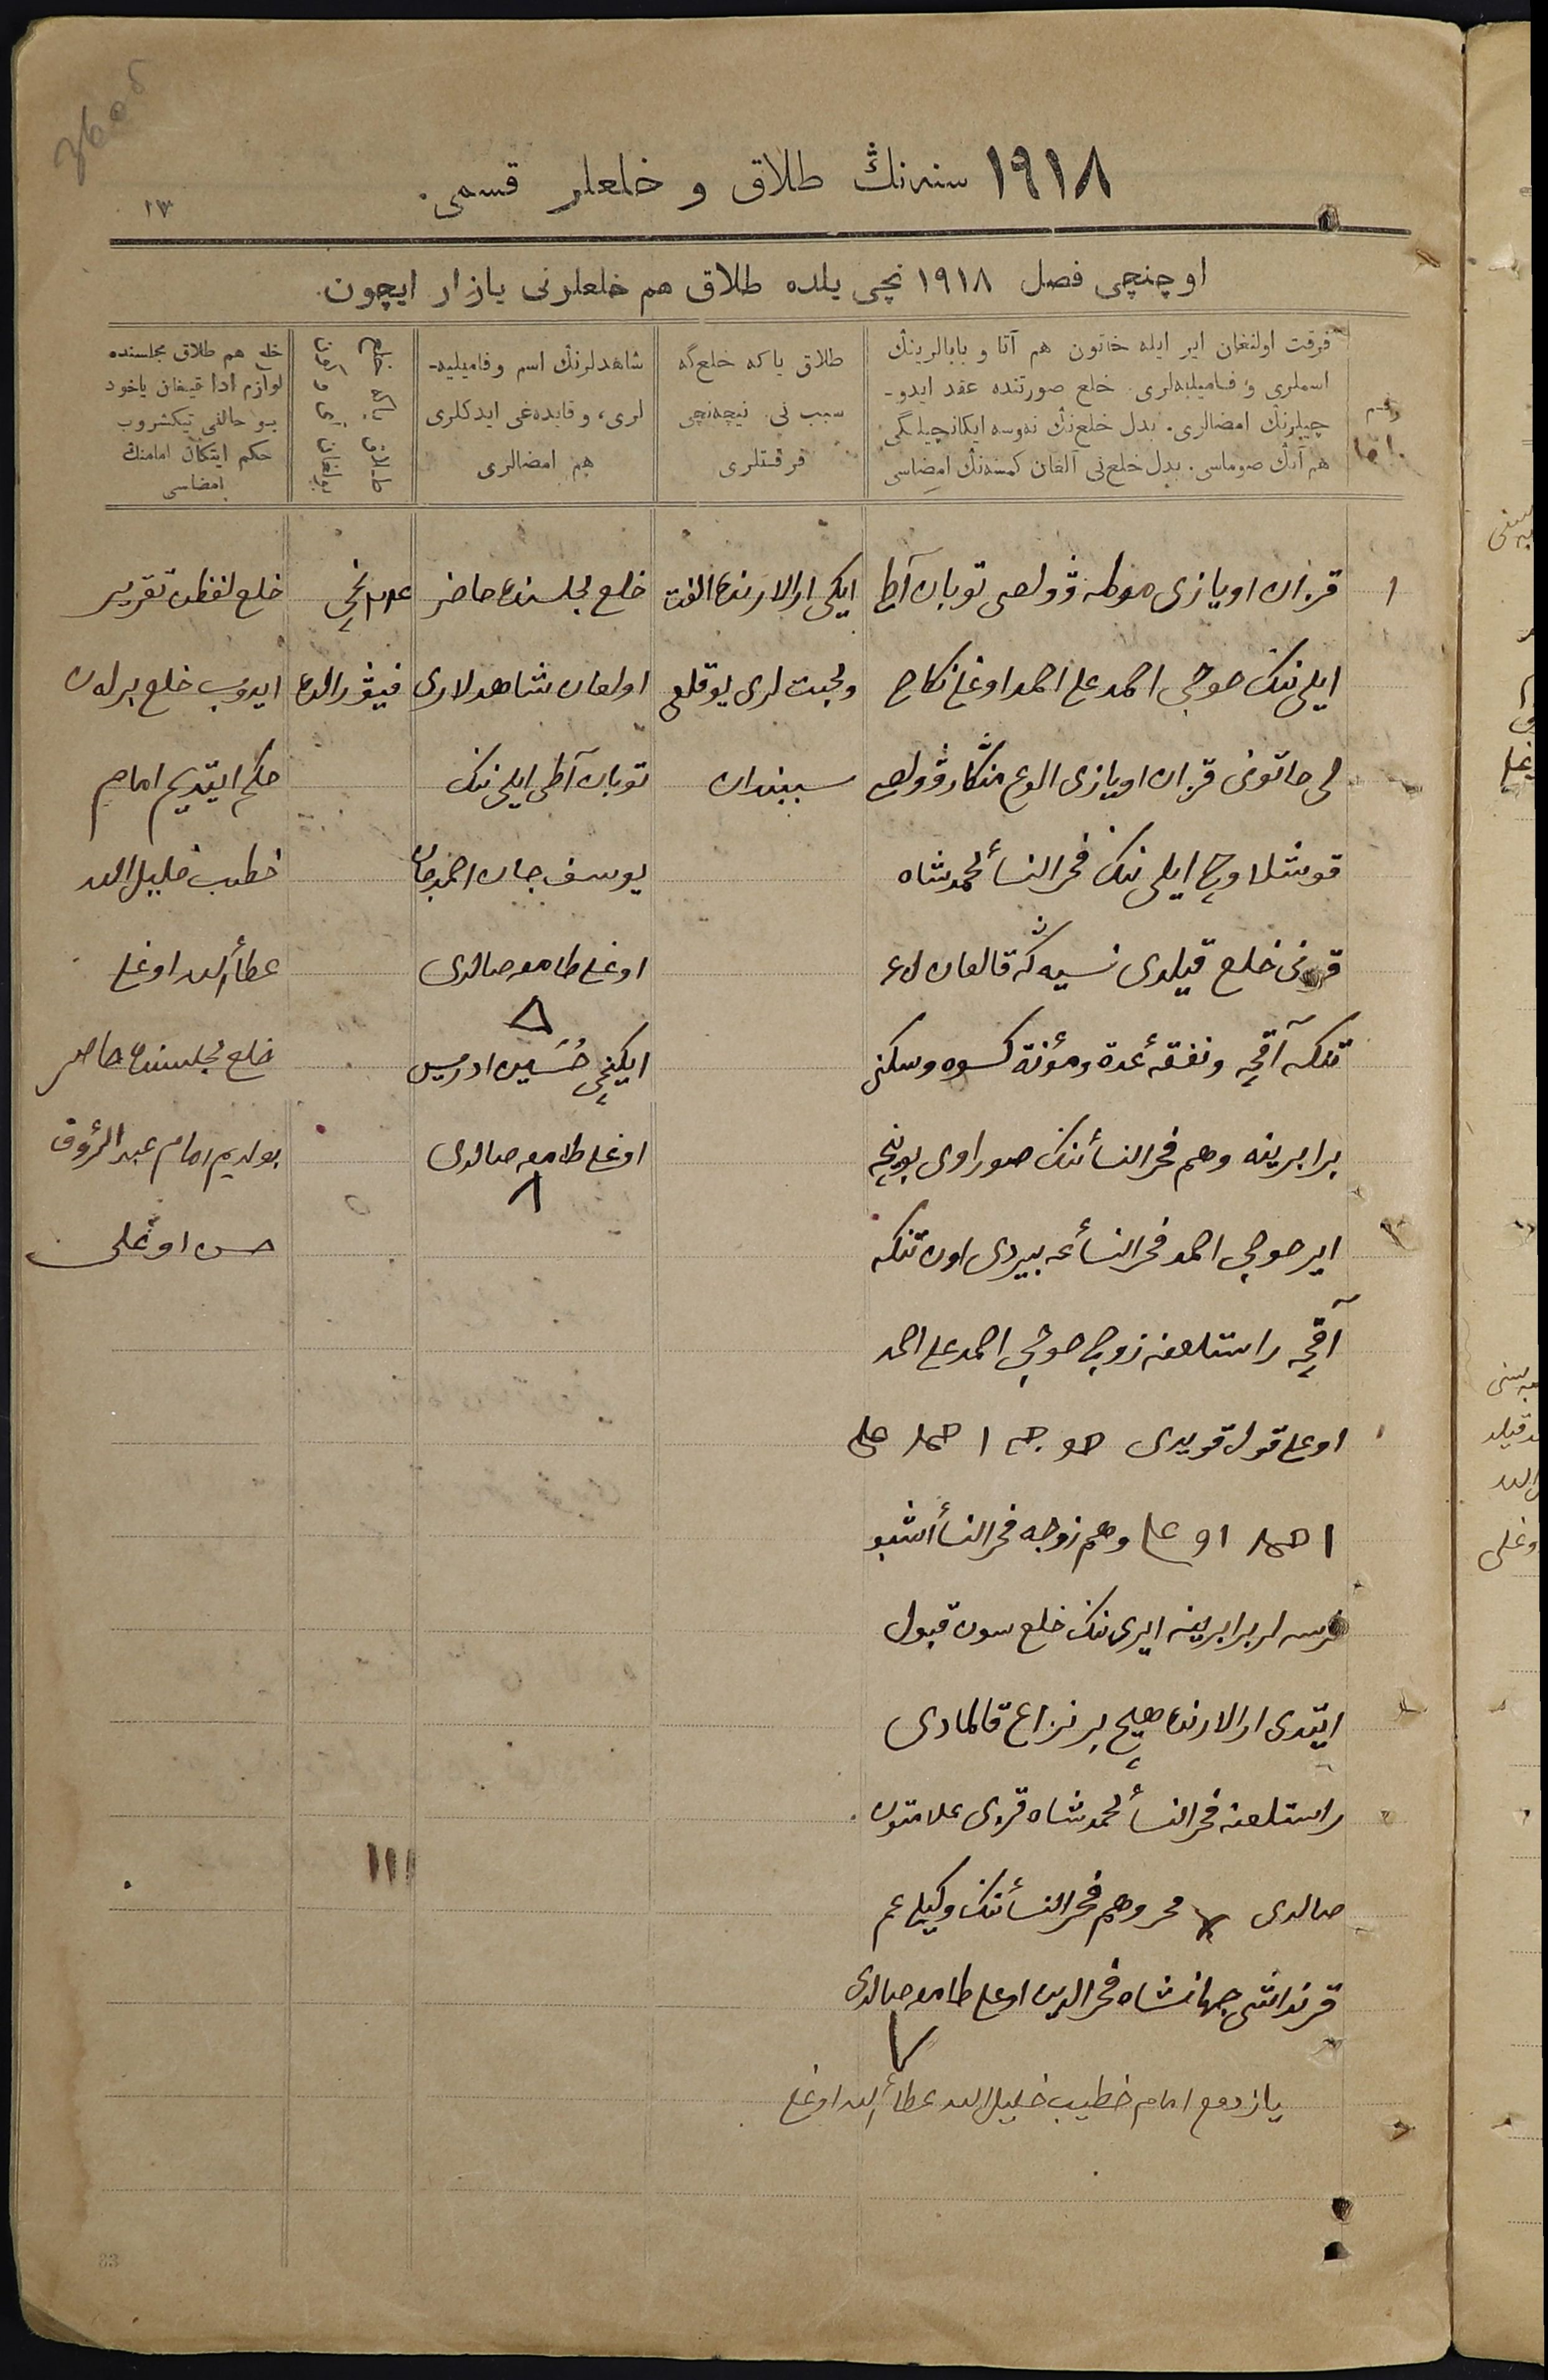 ١٩١٨ سنه‌نڭ طلاق و خلعلر قسمی.
١٣
اوچنچی فصل ١٩١٨ نچی یلده طلاق هم خلعلرنی یازار ایچون.
رقم
فرقت اولنغان ایر ایله خاتون هم آتا و بابالرینڭ
اسملری و فامیلیه‌لری. خلع صورتنده عقد ایدو-
چیلرنڭ امضالری. بدل خلع‌نڭ نه‌رسه ایکانچیلگی
هم آنڭ صوماسی. بدل خلع‌نی آلغان کمسه‌نڭ امضاسی
طلاق یا که خلع گه
سبب نی. نیچه‌نچی
فرقتلری
شاهدلرنڭ اسم و فامیلیه-
لری، و قایده‌غی ایدکلری
هم امضالری
طلاق یا که خلع
بولغان آی و کون
خلع هم طلاق مجلسنده
لوازم ادا قیلغان یاخود
بو حالنی تیکشروب
حکم ایتکان امامنڭ
امضاسی
١
قزان اویازی وولصی توبان آطی
ایلی ننک خوجی احمد علی احمد اوغلی نکاح
لی خاتونی قزان اویازی الوغ منکار وولصی
قوشلاوچ ایلی ننک فخرالنسأ محمدشاه
قزنی خلع قیلدی نسیه گه قالغان
تنکه آقچه و نفقۀ عدة و مؤنة کسوه و سکنی
برابرینه وهم فخرالنسأننک صوراوی بوینچه
ایر خوجی احمد فخرالنسأغه بیردی اون تنکه
آقچه راستلغنه زوج خوجی احمد علی احمد
اوغلی قول قویدی خوجه احمد علی
احمد اوغلی وهم زوجه فخرالنسأ اشبو
نرسه لر برابرینه ایری ننک خلع سون قبول
ایتدی ارالارنده هیچ بر نزاع قالمادی
راستلغنه فخرالنسأ محمدشاه قزی علامتون
صالدی وهم فخرالنسأننک وکیلی عم
قرنداشی جهانشاه فخرالدین اوغلی طامغه صالدی
یازدم امام خطیب خلیل الله عطأالله اوغلی
ایکی ارالارنده الفت
و محبت لری یوقلغ
سببندان
خلع مجلسنده حاضر
اولغان شاهدلاری
توبان آطی ایلی ننک
یوسف جان احمدجان
اوغلی طامغه صالدی
ایکنچی حُسَین ادریس
اوغلی طامغه صالدی
نچی
فیوْرالده
خلع لفظن تقریر
ایدوب خلع برلەن
حکم ایتدیم امام
خطیب خلیل الله
عطأالله اوغلی
خلع مجلسنده حاضر
بولدیم امام عبدالرؤف
حسن اوغلی
83